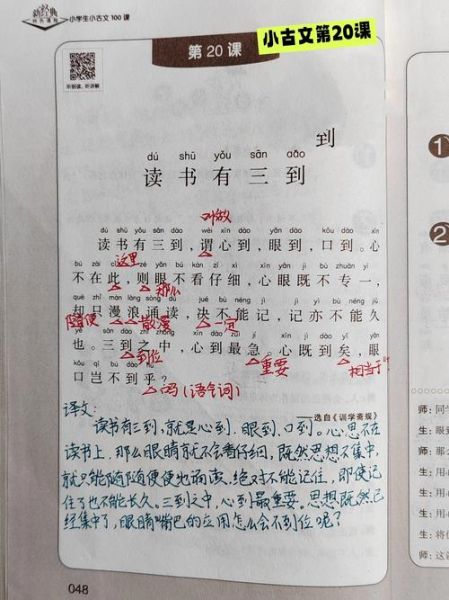 新经典
小学生小古文100课
听朗读,听讲解
第20课
小古文第20课
到
dú shū yǒu sān dào
读书有三到
叫做
dú shū yǒu sān dào wèi xīn dào yǎn dào kǒu dào xīn
读书有三到,谓心到,眼到,口到。心
这里 那么
不在此,则眼不看仔细,心眼既不专一,
却只漫浪诵读,决不能记,记亦不能久
随便 散漫 一定
也。三到之中,心到最急。心既到矣,眼
到位 重要 相当于“了”
口岂不到乎?
吗(语气词)
——选自《训学斋规》
译文:
读书有三到,就是心到、眼到、口到。心思不在
读书上,那么眼睛就不会看仔细,既然思想不集中,
就只能随随便便地诵读,绝对不能记住,即使记
住了也不能长久。三到之中,心到最重要。思想既然已
经集中了,眼睛嘴巴的应用怎么会不到位呢?
048
1
2
师:同学
生:眼到
师:那么
生:用心
生:用眼
生:用
生:将
师:这